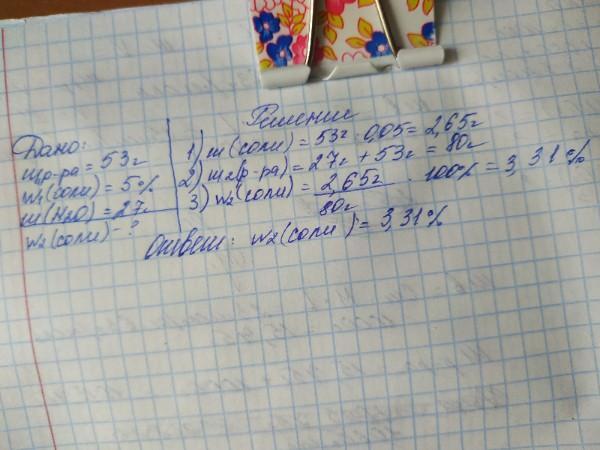 Решение
Дано:
mр-ра = 53г
w₁(соли) = 5%
m(H₂O) = 27г
w₂(соли) - ?
1) m(соли) = 53г · 0,05 = 2,65г
2) m₂(р-ра) = 27г + 53г = 80г
3) w₂(соли) = 2,65г / 80г · 100% = 3,31%
Ответ: w₂(соли) = 3,31%